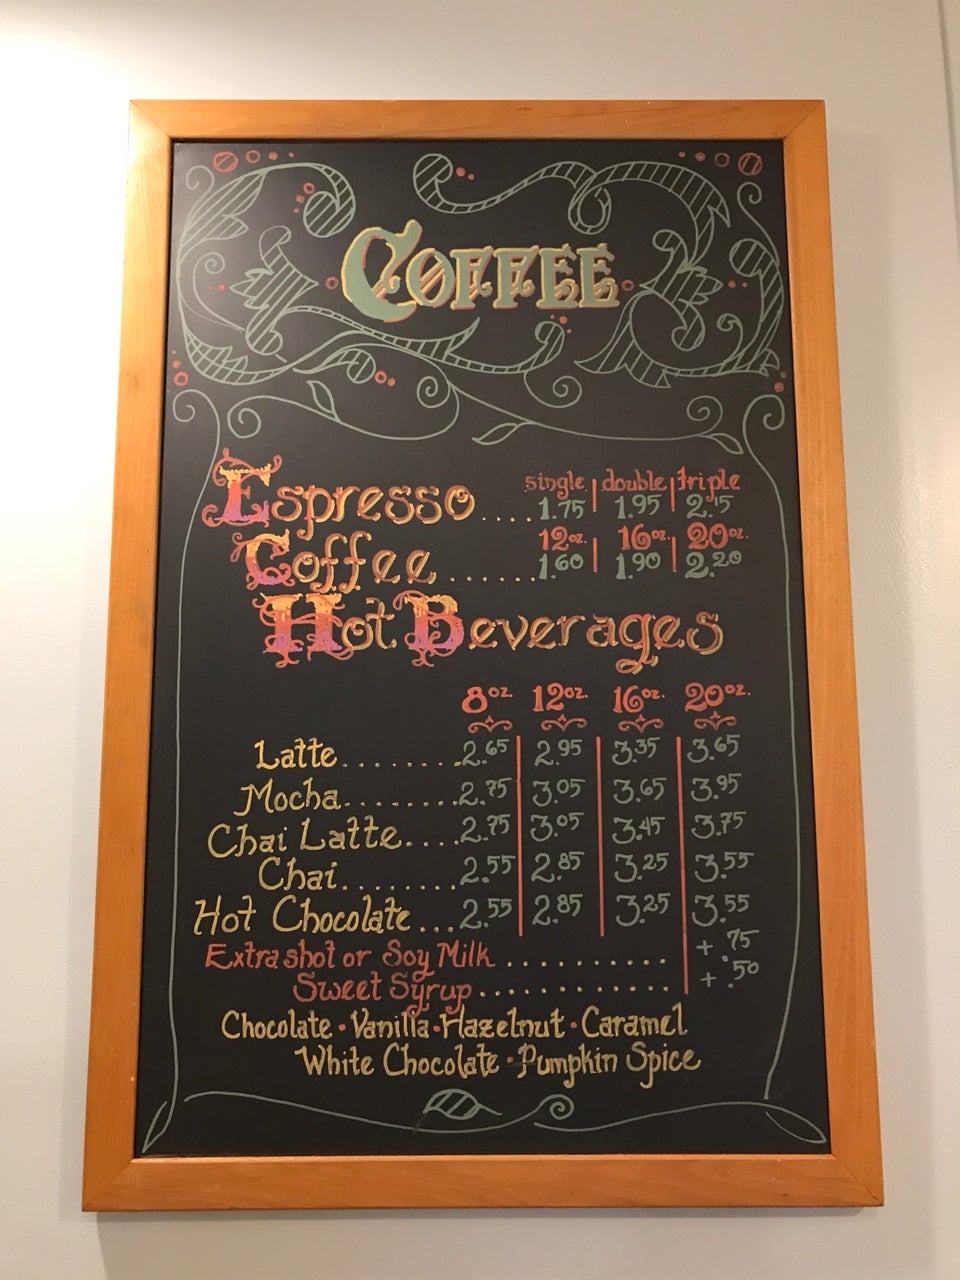 Coffee
single | double | triple
Espresso ....1.75 | 1.95 | 2.15
12oz. | 16oz. | 20oz.
Coffee ......1.60 | 1.90 | 2.20
Hot Beverages
8oz. 12oz. 16oz. 20oz.
Latte........2.65 | 2.95 | 3.35 | 3.65
Mocha........2.75 | 3.05 | 3.65 | 3.95
Chai Latte....2.75 | 3.05 | 3.45 | 3.75
Chai........2.55 | 2.85 | 3.25 | 3.55
Hot Chocolate ...2.55 | 2.85 | 3.25 | 3.55
Extra shot or Soy Milk .......... + .75
Sweet Syrup ........... + .50
Chocolate • Vanilla • Hazelnut • Caramel
White Chocolate • Pumpkin Spice